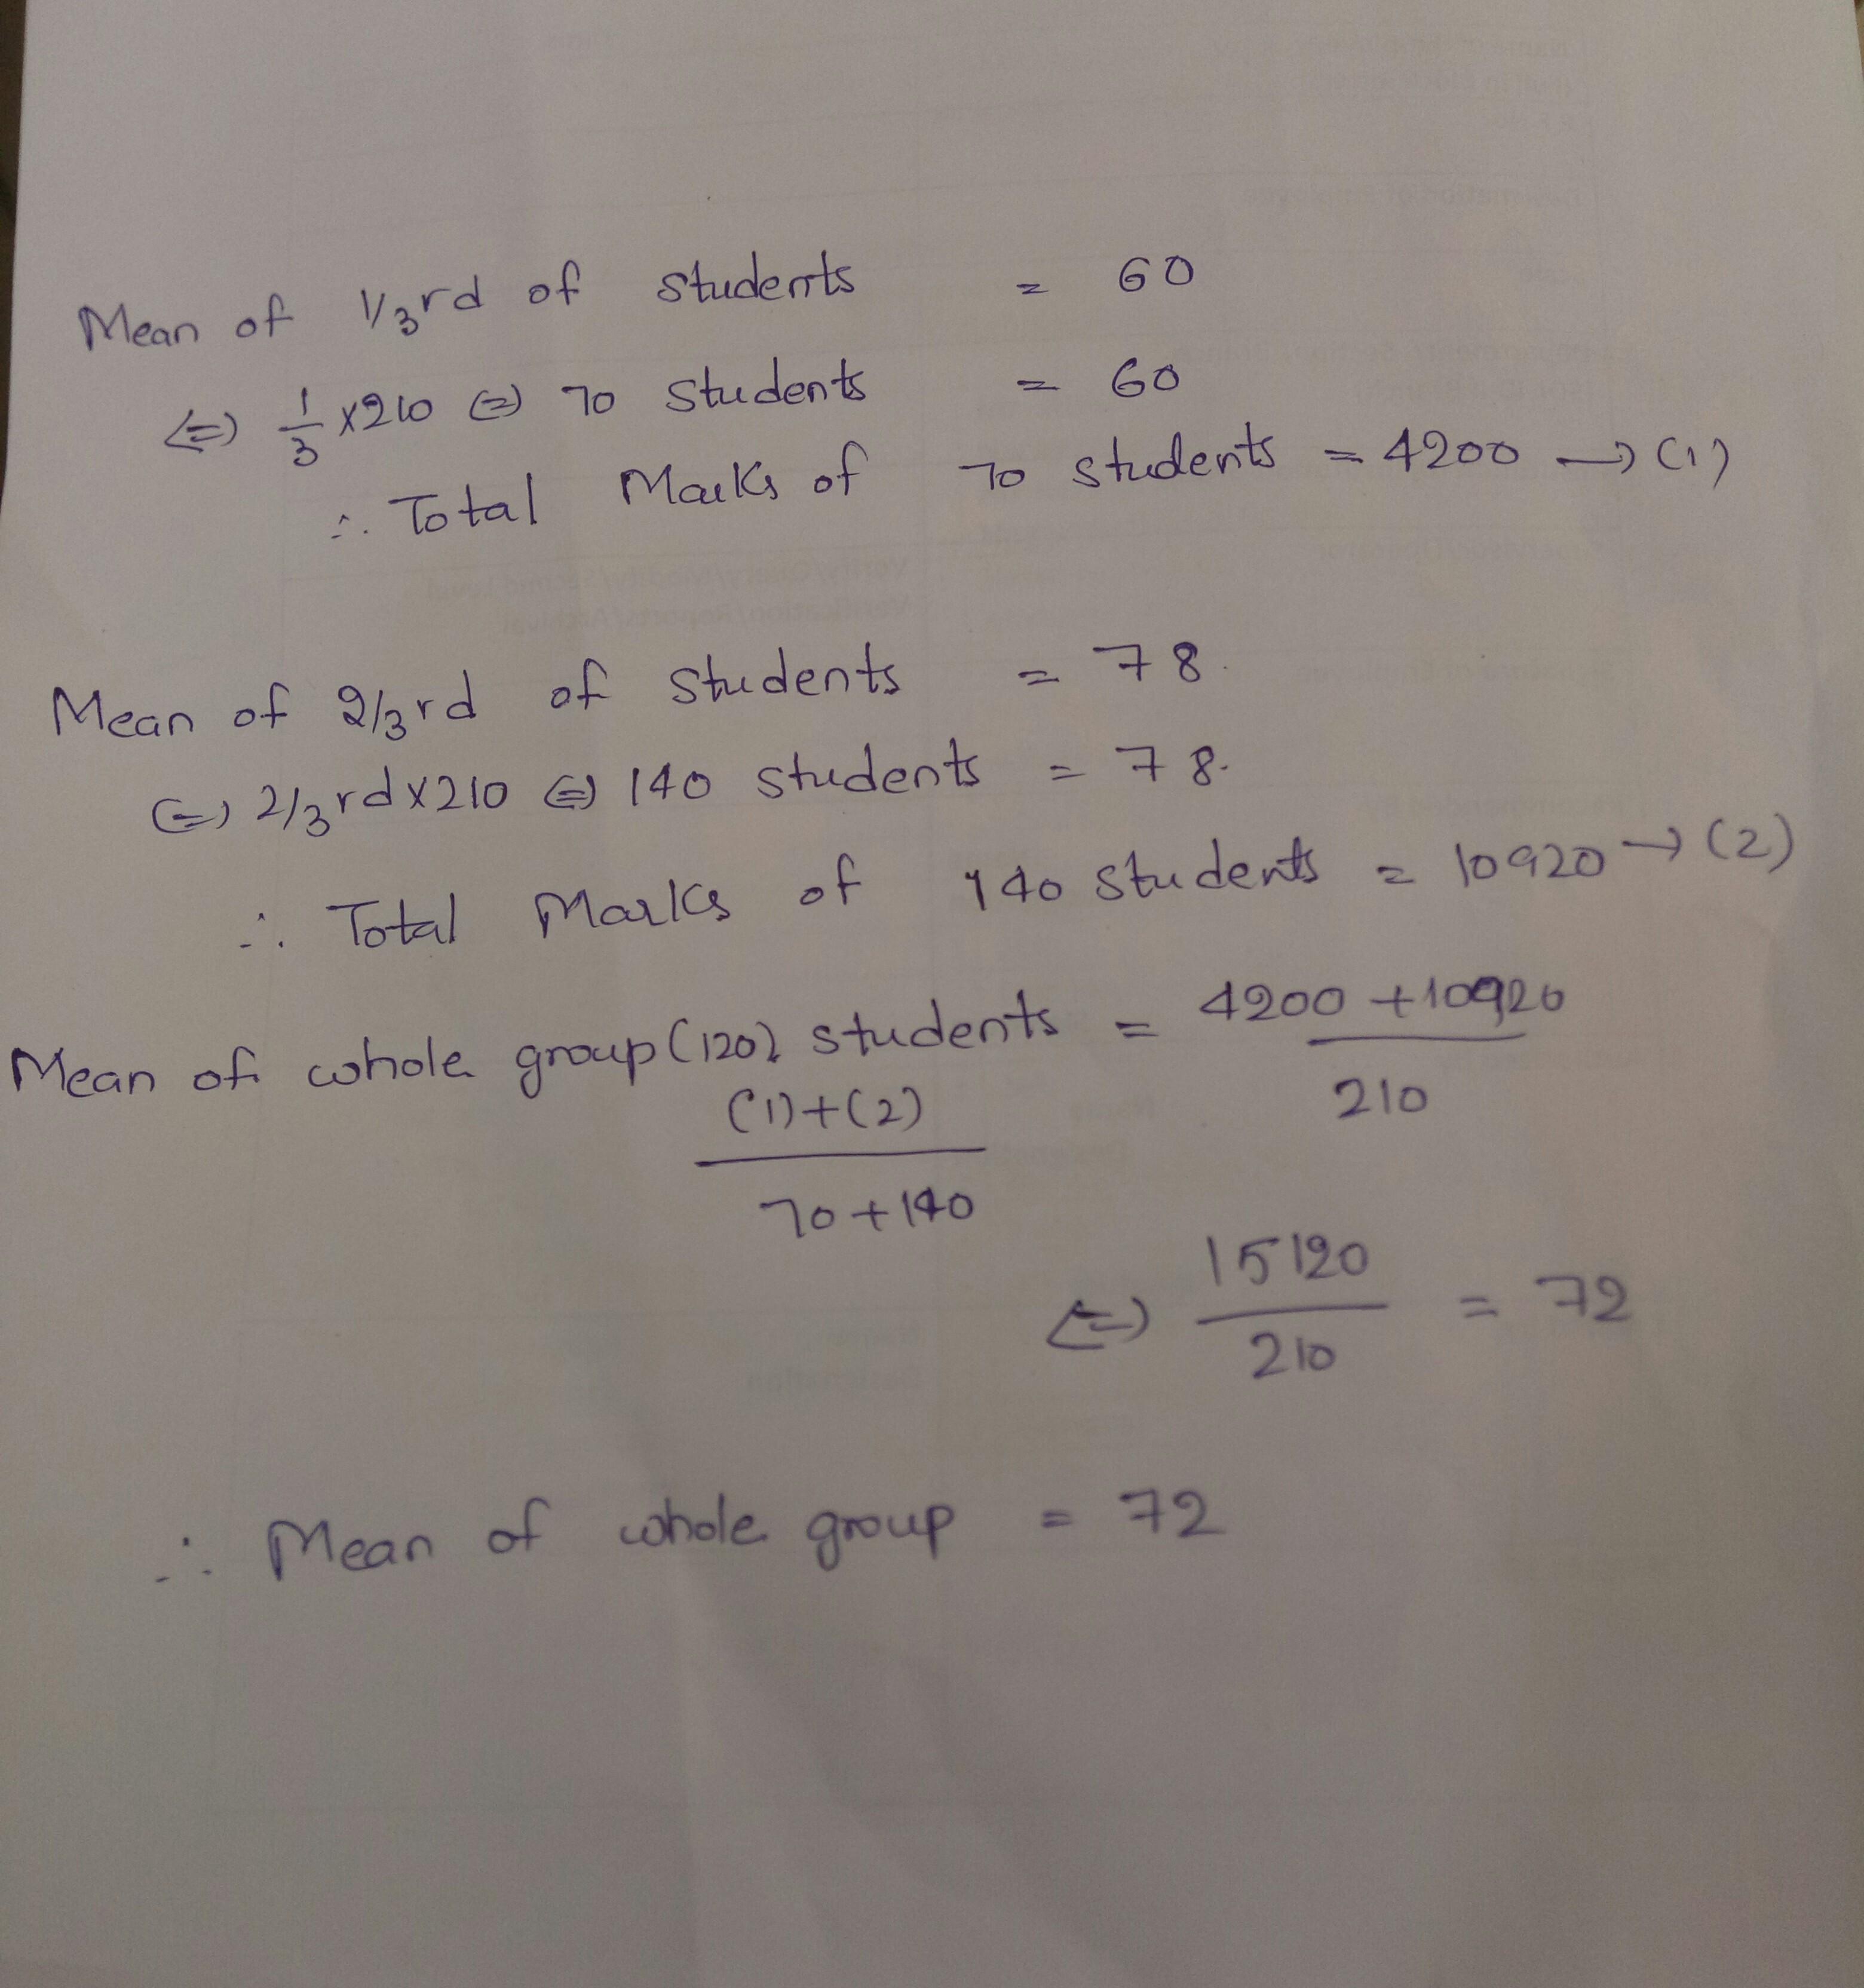 Mean of 1/3rd of students = 60
⇔ 1/3 x210 ⇔ 70 students = 60
∴ Total Marks of 70 students = 4200 → (1)
Mean of 2/3rd of students = 78.
⇔ 2/3rd x210 ⇔ 140 students = 78.
∴ Total Marks of 140 students = 10920 → (2)
Mean of whole group (120) students = 4200 + 10920 / 210
(1)+(2) / 70+140
⇔ 15120 / 210 = 72
∴ Mean of whole group = 72